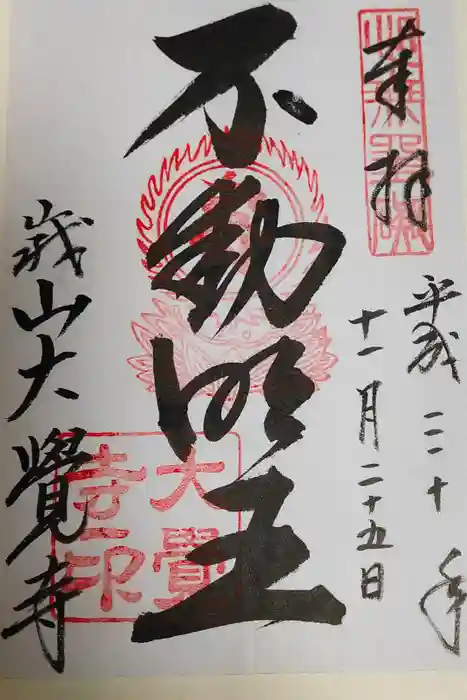 奉拝
平成三十年
十一月二十五日
不動明王
大覺
寺印
峩山大覺寺